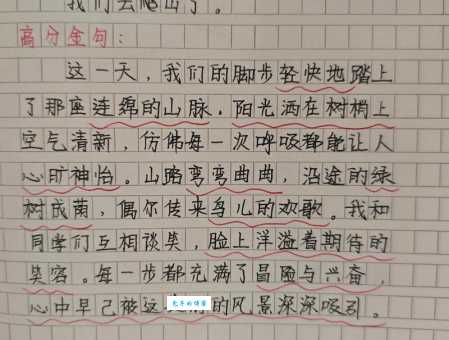 我们去爬山了。
高分金句：
这一天，我们的脚步轻快地踏上
了那座连绵的山脉，阳光洒在树梢上
空气清新，仿佛每一次呼吸都能让人
心旷神怡。山路弯弯曲曲，沿途的绿
树成荫，偶尔传来鸟儿的欢歌。我和
同学们互相谈笑，脸上洋溢着期待的
笑容。每一步都充满了冒险与兴奋，
心中早已被这的风景深深吸引。